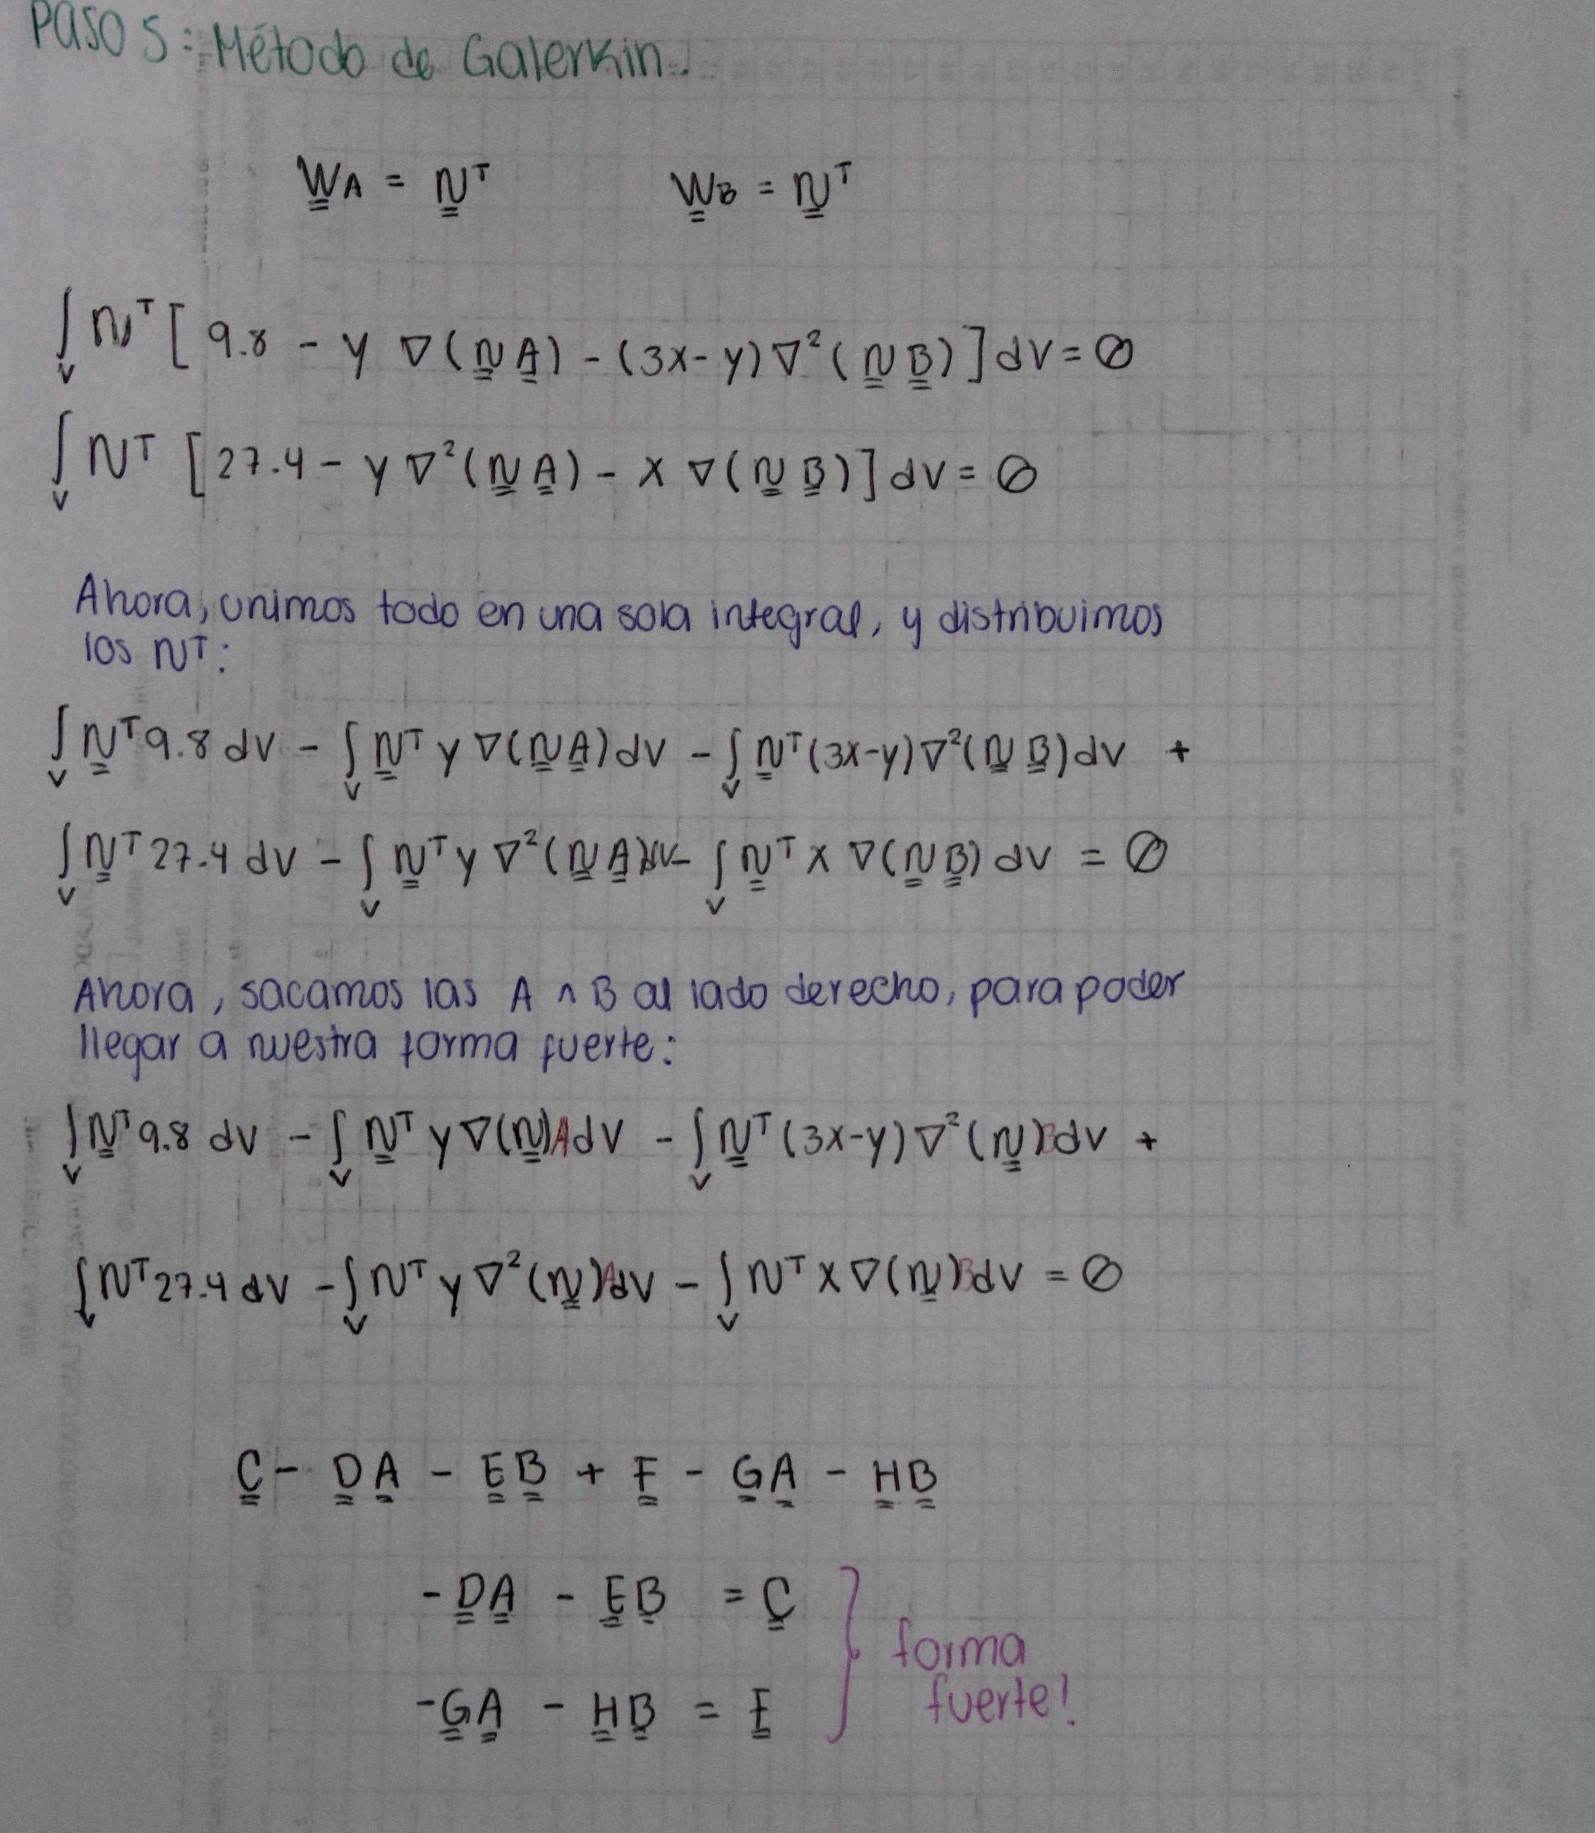 PASO 5: Método de Galerkin.
W_A = N^T W_B = N^T
∫_V N^T [ 9.8 - y ∇(N A) - (3x-y)∇²(N B)] dV = Ø
∫_V N^T [27.4 - y ∇²(N A) - x ∇(N B)] dV = Ø
Ahora, unimos todo en una sola integral, y distribuimos
los N^T:
∫_V N^T 9.8 dV - ∫_V N^T y ∇(N A) dV - ∫_V N^T (3x-y)∇²(N B) dV +
∫_V N^T 27.4 dV - ∫_V N^T y ∇²(N A) dV - ∫_V N^T x ∇(N B) dV = Ø
Ahora, sacamos las A ∧ B al lado derecho, para poder
llegar a nuestra forma fuerte:
∫_V N^T 9.8 dV - ∫_V N^T y ∇(N) A dV - ∫_V N^T (3x-y)∇²(N) B dV +
∫_V N^T 27.4 dV - ∫_V N^T y ∇²(N) A dV - ∫_V N^T x ∇(N) B dV = Ø
C - DA - EB + F - GA - HB
-DA - EB = C
-GA - HB = F
forma
fuerte!